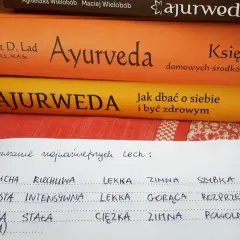 Agnieszka Wielobób Maciej Wielobób
ajurwed
t D. Lad
Ayurveda
Księ
domowych środków
AJURWEDA
Jak dbać o siebie
i być zdrowym
najważniejszych cech :
SUCHA RUCHLIWA LEKKA ZIMNA SZYBKA
STA INTENSYWNA LEKKA GORĄCA ROZPRZE
STAŁA CIĘŻKA ZIMNA POWOL